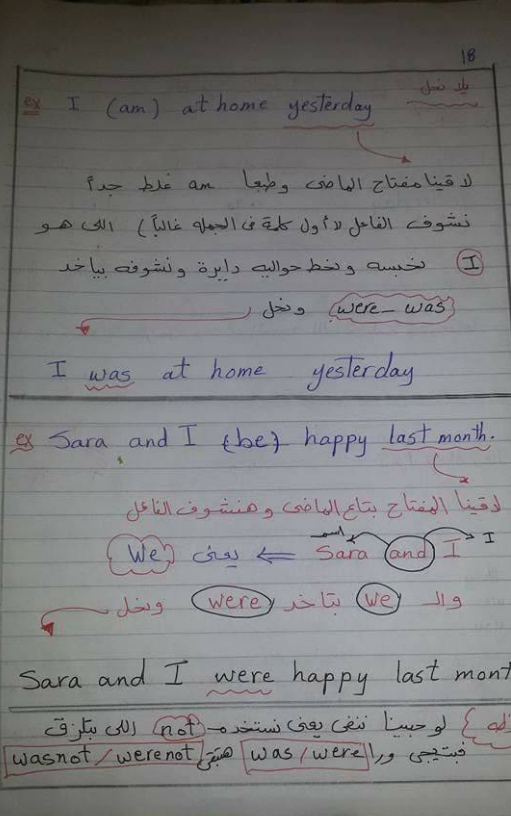 18
يلا نحل
ex I (am) at home yesterday
لاقينا مفتاح الماضى وطبعا am غلط جداً
نشوف الفاعل (أول كلمة فى الجمله غالباً) اللى هو
I نحبسه ونحط حواليه دايرة ونشوفه بياخد
were - was ونحل
I was at home yesterday
ex Sara and I {be} happy last month.
لاقينا المفتاح بتاع الماضى وهنشوف الفاعل
اسم Sara and I I ⇐ يعنى We
والـ we بتاخد were ونحل
Sara and I were happy last mont
لو حبينا ننفى يعنى نستخدم not اللى بتلزق
فبتيجى ورا was / were هتبقى wasnot / werenot